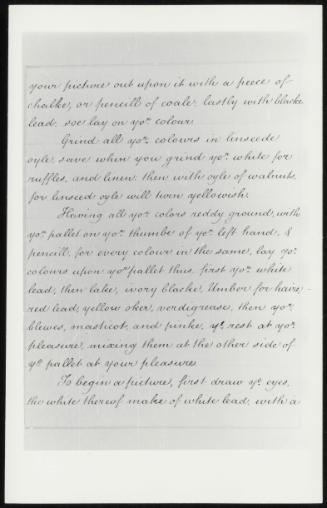 your picture out upon it with a peece of
chalke, or pencill of coale, lastly with blacke
lead, soe lay on yor. colour
Grind all yor. colours in linseede
oyle, save when you grind yor. white for
ruffles, and linen, then with oyle of walnuts,
for linseed oyle will turn yellowish.
Having all yor. colors reddy ground, with
yor. pallet on yor. thumbe of yor. left hand, &
pencill, for every colour in the same, lay yor.
colours upon yor. pallet thus, first yor. white
lead, then lake, ivory blacke, Umbor for haire,-
red lead, yellow oker, verdigrease, then yor.
blewes, masticot, and pinke, ye. rest at yor.
pleasure, mixing them at the other side of
yor. pallet at your pleasure
To begin a picture, first draw ye. eyes,
the white thereof make of white lead, with a